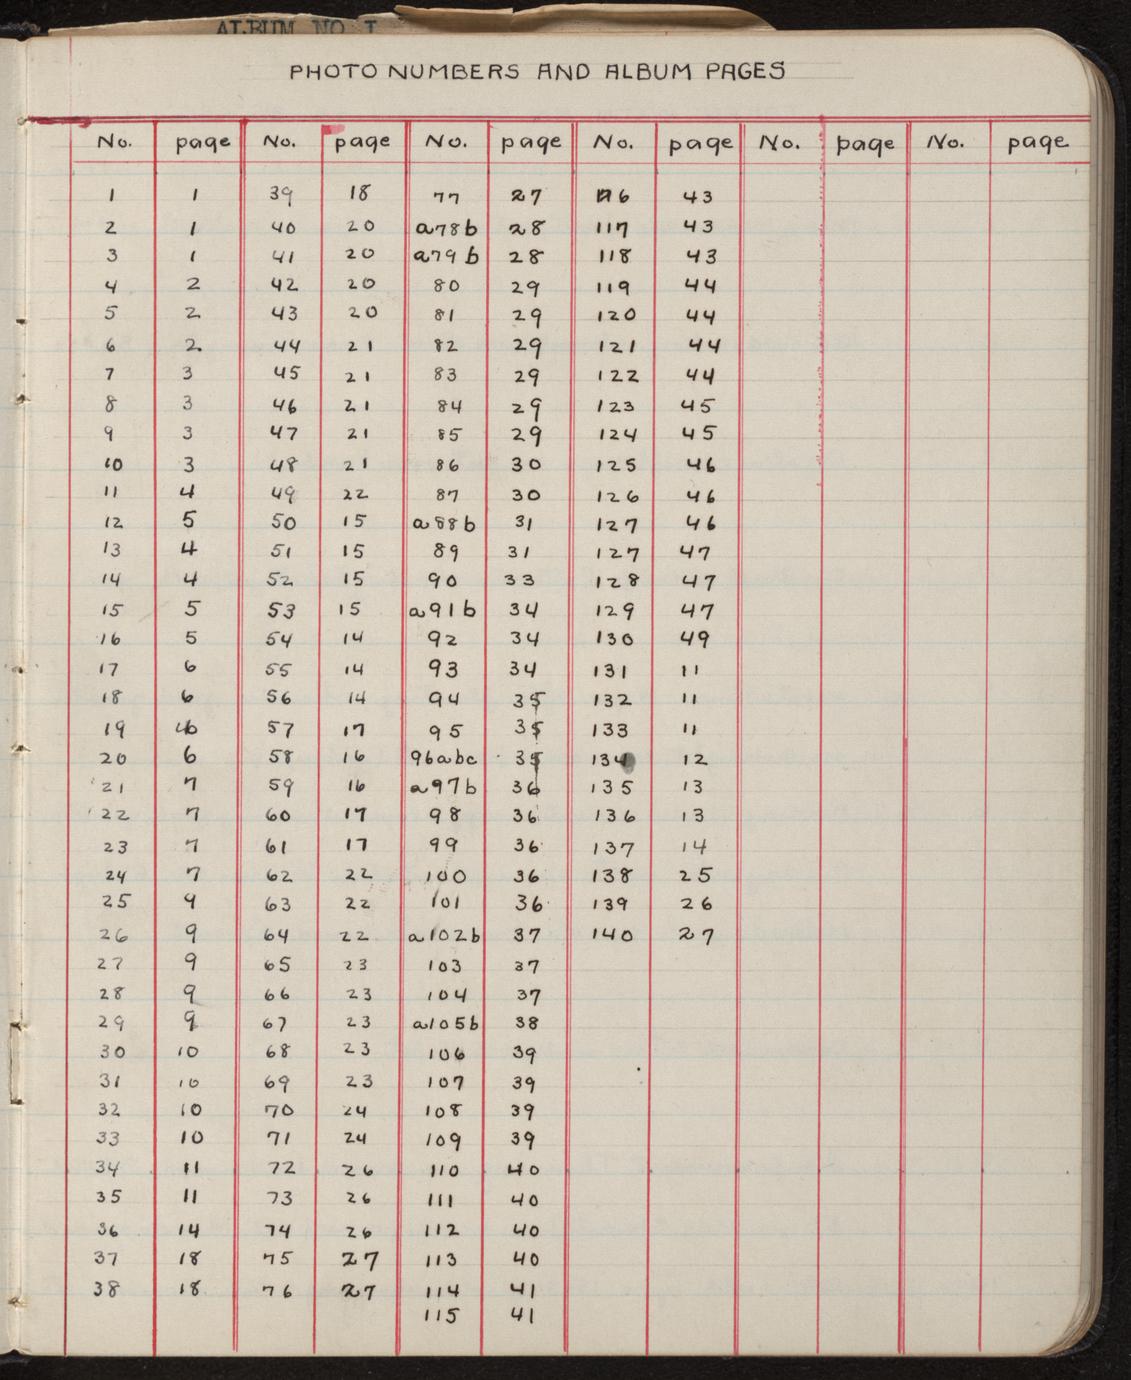 ALBUM NO I
PHOTO NUMBERS AND ALBUM PAGES
No. page No. page No. page No. page No. page No. page
1 1 39 18 77 27 116 43
2 1 40 20 a78b 28 117 43
3 1 41 20 a79b 28 118 43
4 2 42 20 80 29 119 44
5 2 43 20 81 29 120 44
6 2 44 21 82 29 121 44
7 3 45 21 83 29 122 44
8 3 46 21 84 29 123 45
9 3 47 21 85 29 124 45
10 3 48 21 86 30 125 46
11 4 49 22 87 30 126 46
12 5 50 15 a88b 31 127 46
13 4 51 15 89 31 127 47
14 4 52 15 90 33 128 47
15 5 53 15 a91b 34 129 47
16 5 54 14 92 34 130 49
17 6 55 14 93 34 131 11
18 6 56 14 94 35 132 11
19 6 57 17 95 35 133 11
20 6 58 16 96abc 35 134 12
21 7 59 16 a97b 36 135 13
22 7 60 17 98 36 136 13
23 7 61 17 99 36 137 14
24 7 62 22 100 36 138 25
25 9 63 22 101 36 139 26
26 9 64 22 a102b 37 140 27
27 9 65 23 103 37
28 9 66 23 104 37
29 9 67 23 a105b 38
30 10 68 23 106 39
31 10 69 23 107 39
32 10 70 24 108 39
33 10 71 24 109 39
34 11 72 26 110 40
35 11 73 26 111 40
36 14 74 26 112 40
37 18 75 27 113 40
38 18 76 27 114 41
115 41